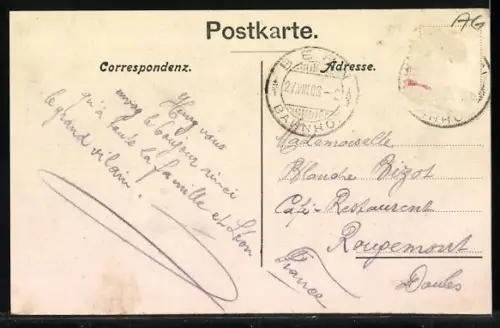 AG
Postkarte.
Correspondenz.
Adresse.
27.VIII.08
BAHNHOF
vous
le bonjour ainsi
qu'à toute la famille et Léon
le grand vilain.
Mademoiselle
Blanche Bizot
Café-Restaurent
Rougemont
Doubs
France